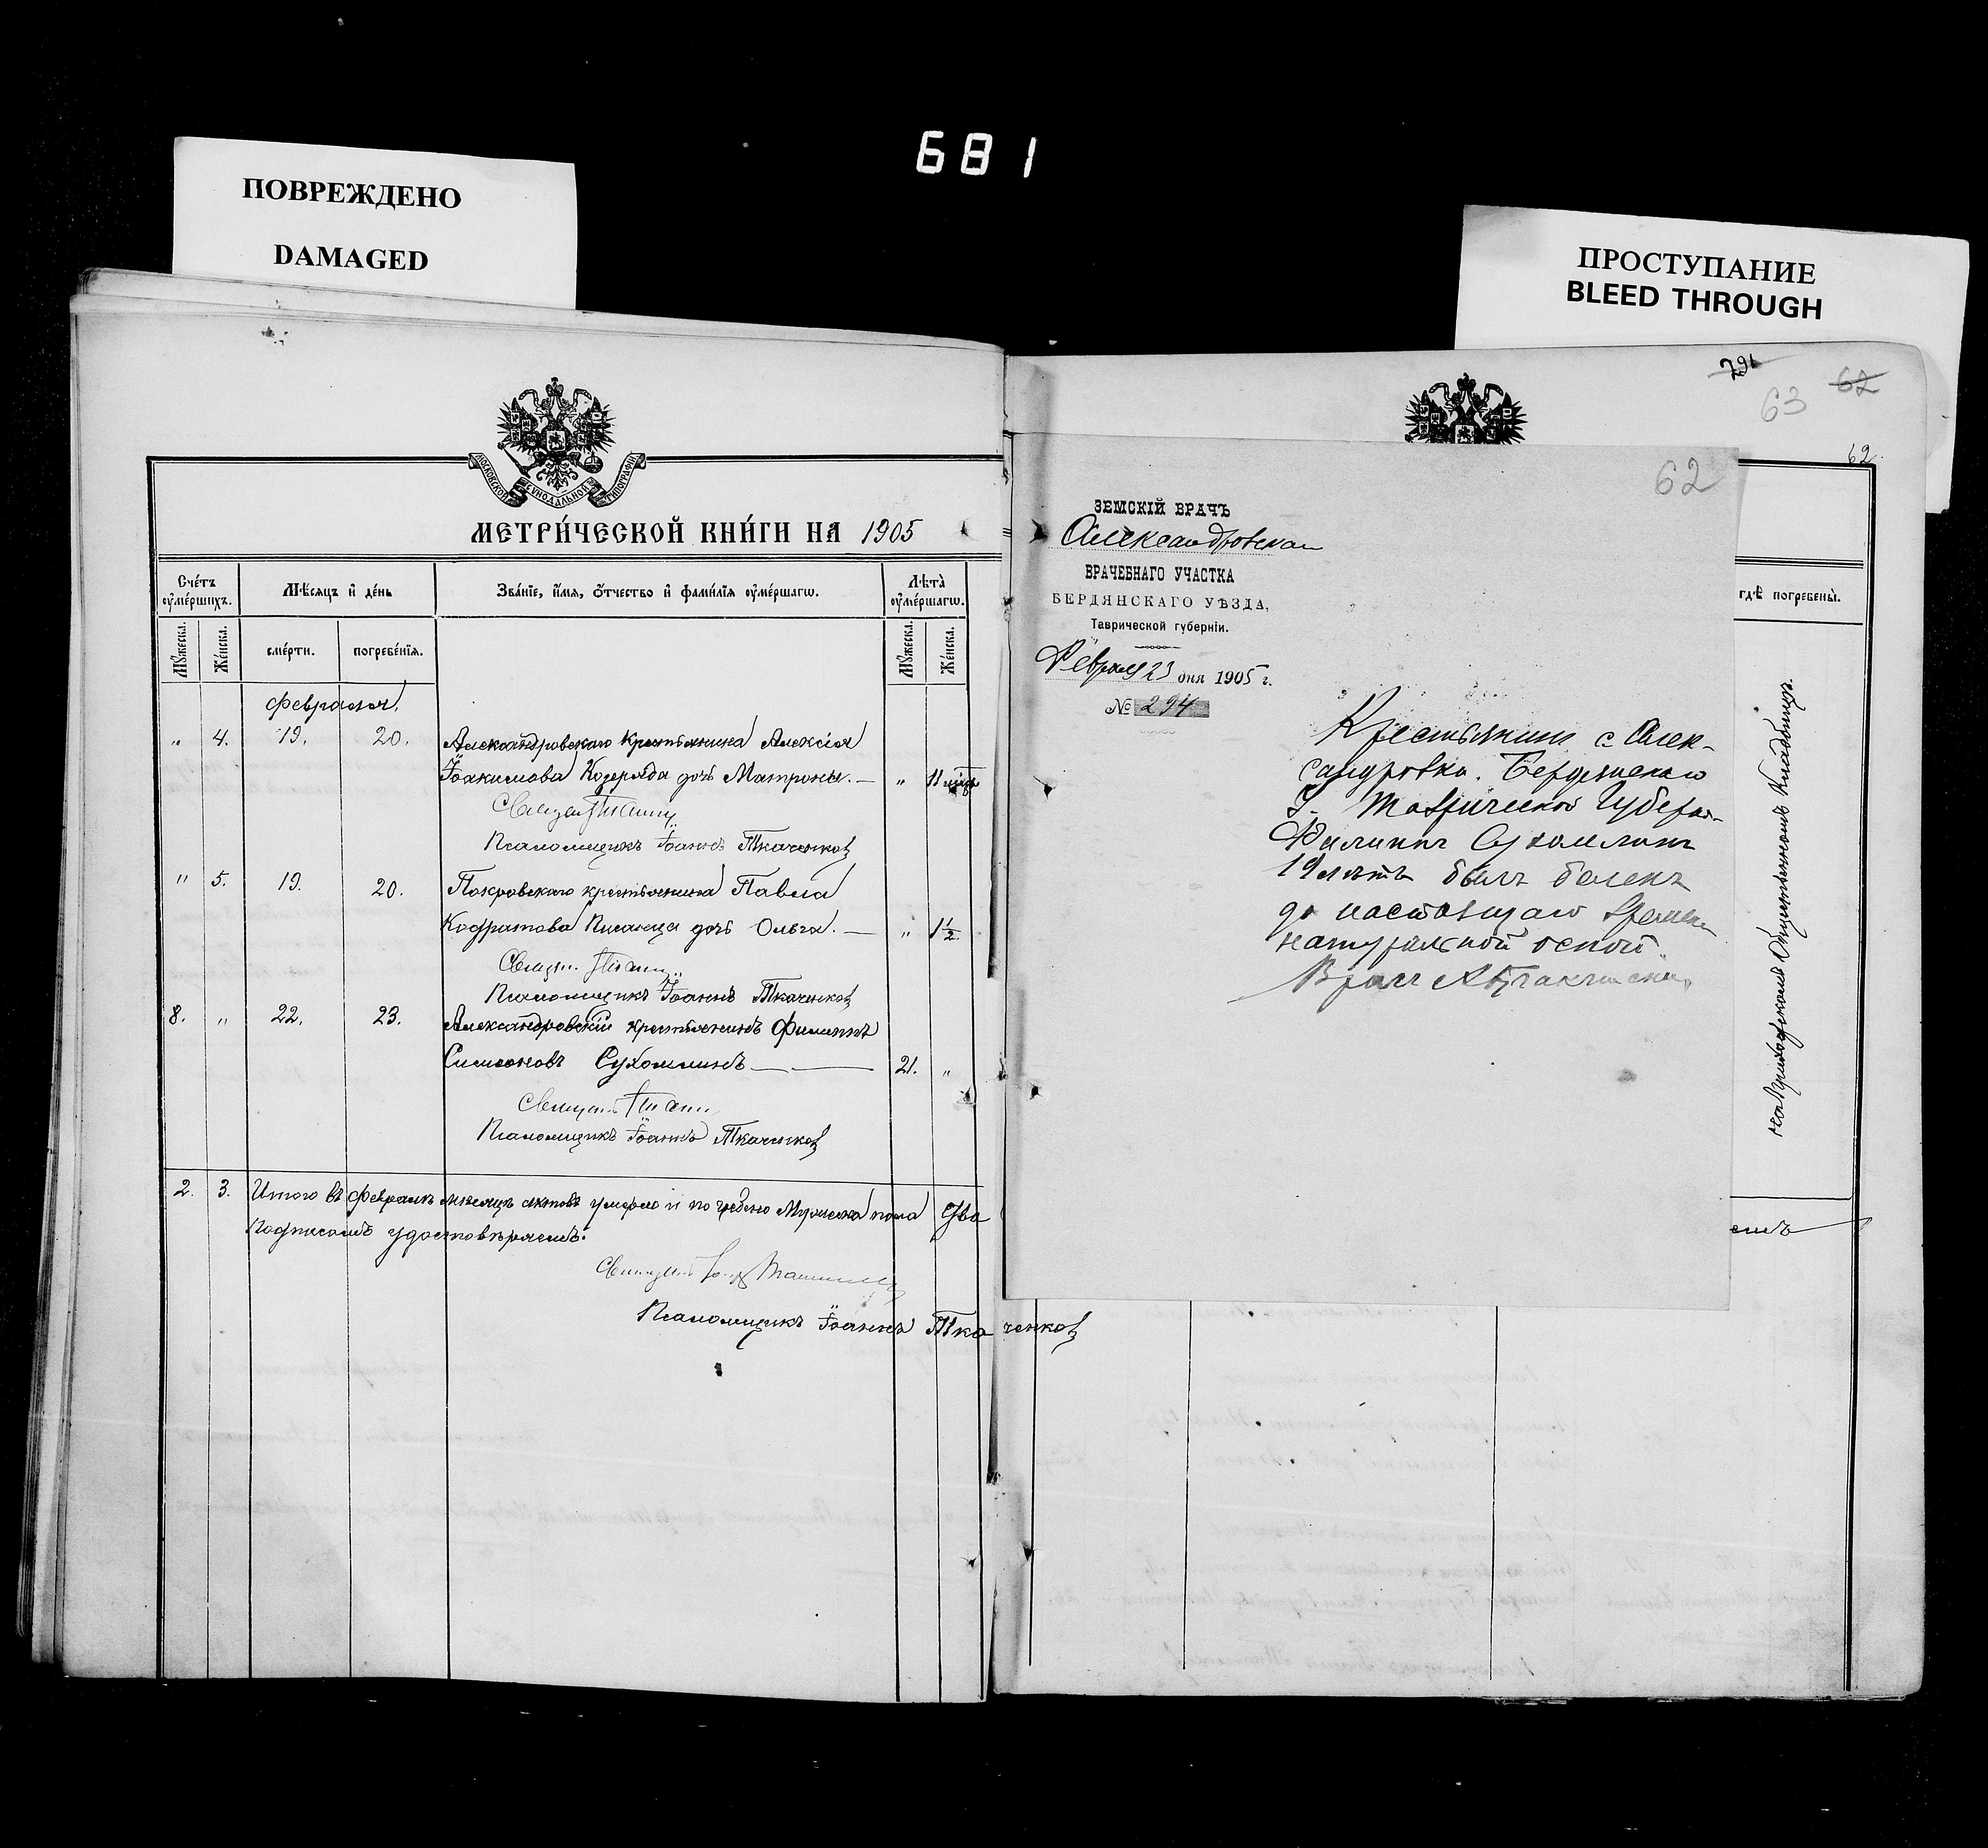 681
ПОВРЕЖДЕНО
DAMAGED
ПРОСТУПАНИЕ
BLEED THROUGH
МОСКОВСКОЙ СѴНОДАЛЬНОЙ ТИПОГРАФІИ
МЕТРИ́ЧЕСКОЙ КНИ́ГИ НА 1905
Сче́тъ оуме́ршихъ.
Мѣ́сяцъ и де́нь
Зва́нїе, и́мя, о́тчество и фами́лїя оуме́ршагѡ.
Лѣта̀ оуме́ршагѡ.
Мꙋ́жеска.
Же́нска.
сме́рти.
погребе́нїя.
Мꙋ́жеска.
Же́нска.
Февраля.
" 4. 19. 20. Александровскаго крестьянина Алексія
Іоакимова Кодеряда дочь Матрона. — " 11 мѣс
Священ
Псаломщикъ Іоаннъ Ткаченко
" 5. 19. 20. Покровскаго крестьянина Павла
Кодратова Писанца дочь Ольга. — " 1½
Священ.
Псаломщикъ Іоаннъ Ткаченко
8. " 22. 23. Александровскій крестьянинъ Филиппъ
Симеоновъ Сухомлинъ — 21. "
Священ
Псаломщикъ Іоаннъ Ткаченко
2. 3. Итого въ Февралѣ мѣсяцѣ актовъ умерло и погребено Мужеска пола два
Подписомъ удостовѣряемъ:
Священ
Псаломщикъ Іоаннъ Ткаченко
291
63
62
62
62
ЗЕМСКІЙ ВРАЧЪ
Александровскаго
ВРАЧЕБНАГО УЧАСТКА
БЕРДЯНСКАГО УѢЗДА,
Таврической губерніи.
Февраля 23 дня 1905 г.
№ 294
Крестьянин с Алек-
сандровки. Бердянскаго
у. Таврической Губерн-
Филиппъ Сухомлинъ
19 лѣтъ былъ боленъ
до настоящаго времени
натуральной оспой.
Врач
гдѣ̀ погребены̀.
на приходскомъ общественномъ кладбищѣ.
емъ